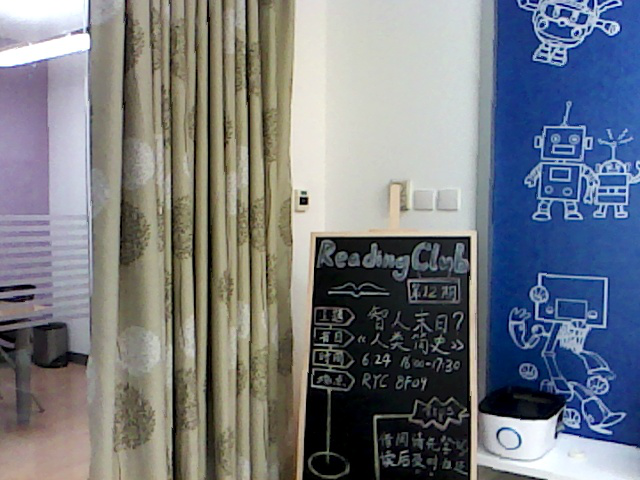 Reading Club
第12期
主题 智人末日?
书目 《人类简史》
时间 6.24 16:00-17:30
地点 RYC 8F04
Tips
借阅请先登记
读后及时归还